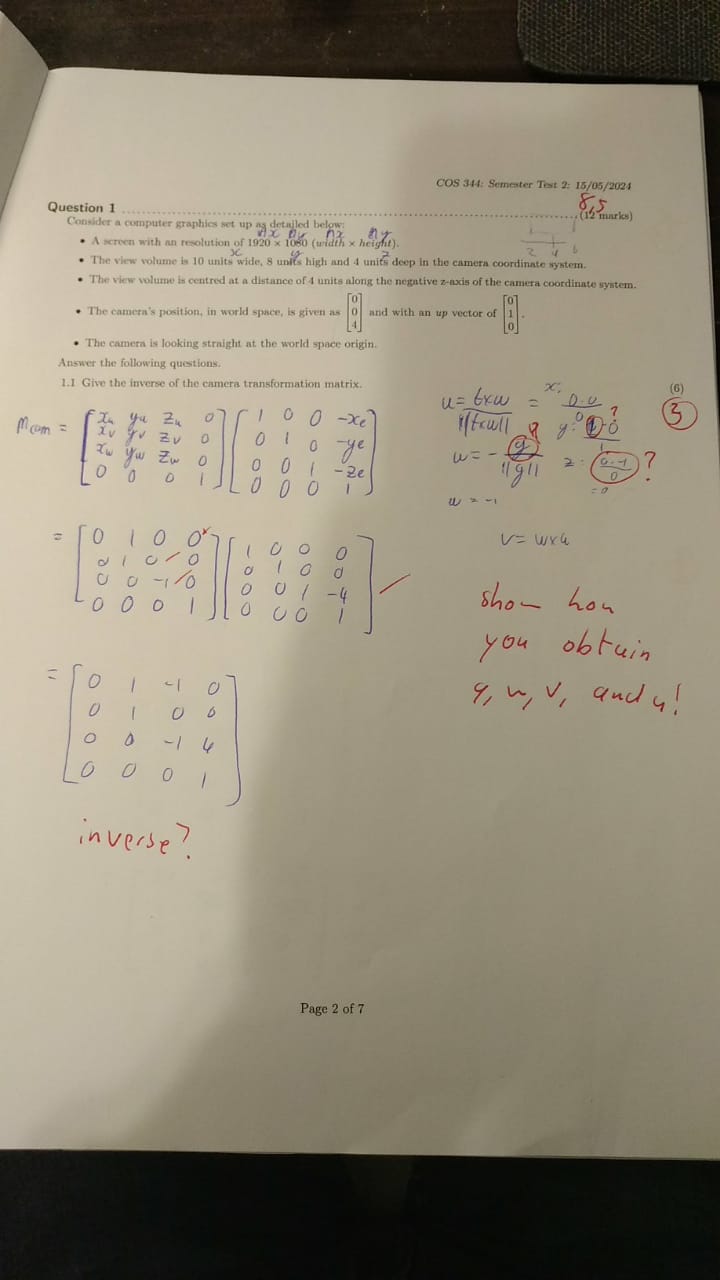 COS 344: Semester Test 2: 15/05/2024
Question 1 ........................ (12 marks)
8,5
Consider a computer graphics set up as detailed below:
nx ny nx ny
• A screen with an resolution of 1920 × 1080 (width × height).
x y z
2 4 6
• The view volume is 10 units wide, 8 units high and 4 units deep in the camera coordinate system.
• The view volume is centred at a distance of 4 units along the negative z-axis of the camera coordinate system.
• The camera's position, in world space, is given as [0 0 4] and with an up vector of [0 1 0].
• The camera is looking straight at the world space origin.
Answer the following questions.
1.1 Give the inverse of the camera transformation matrix. (6)
3
Mcam = [xu yu zu 0] [1 0 0 -xe]
[xv yv zv 0] [0 1 0 -ye]
[xw yw zw 0] [0 0 1 -ze]
[0 0 0 1] [0 0 0 1]
u = txw / ||txw|| = x: 0.0 / 0 ?
y: 1.0 / 1
w = - g / ||g|| g
z: 0.-1 / 0 ?
= 0
w = -1
v = wxu
= [0 1 0 0] [1 0 0 0]
[0 1 0 0] [0 1 0 0]
[0 0 -1 0] [0 0 1 -4]
[0 0 0 1] [0 0 0 1]
show how
you obtain
g, w, v, and u!
= [0 1 -1 0]
[0 1 0 0]
[0 0 -1 4]
[0 0 0 1]
inverse?
Page 2 of 7